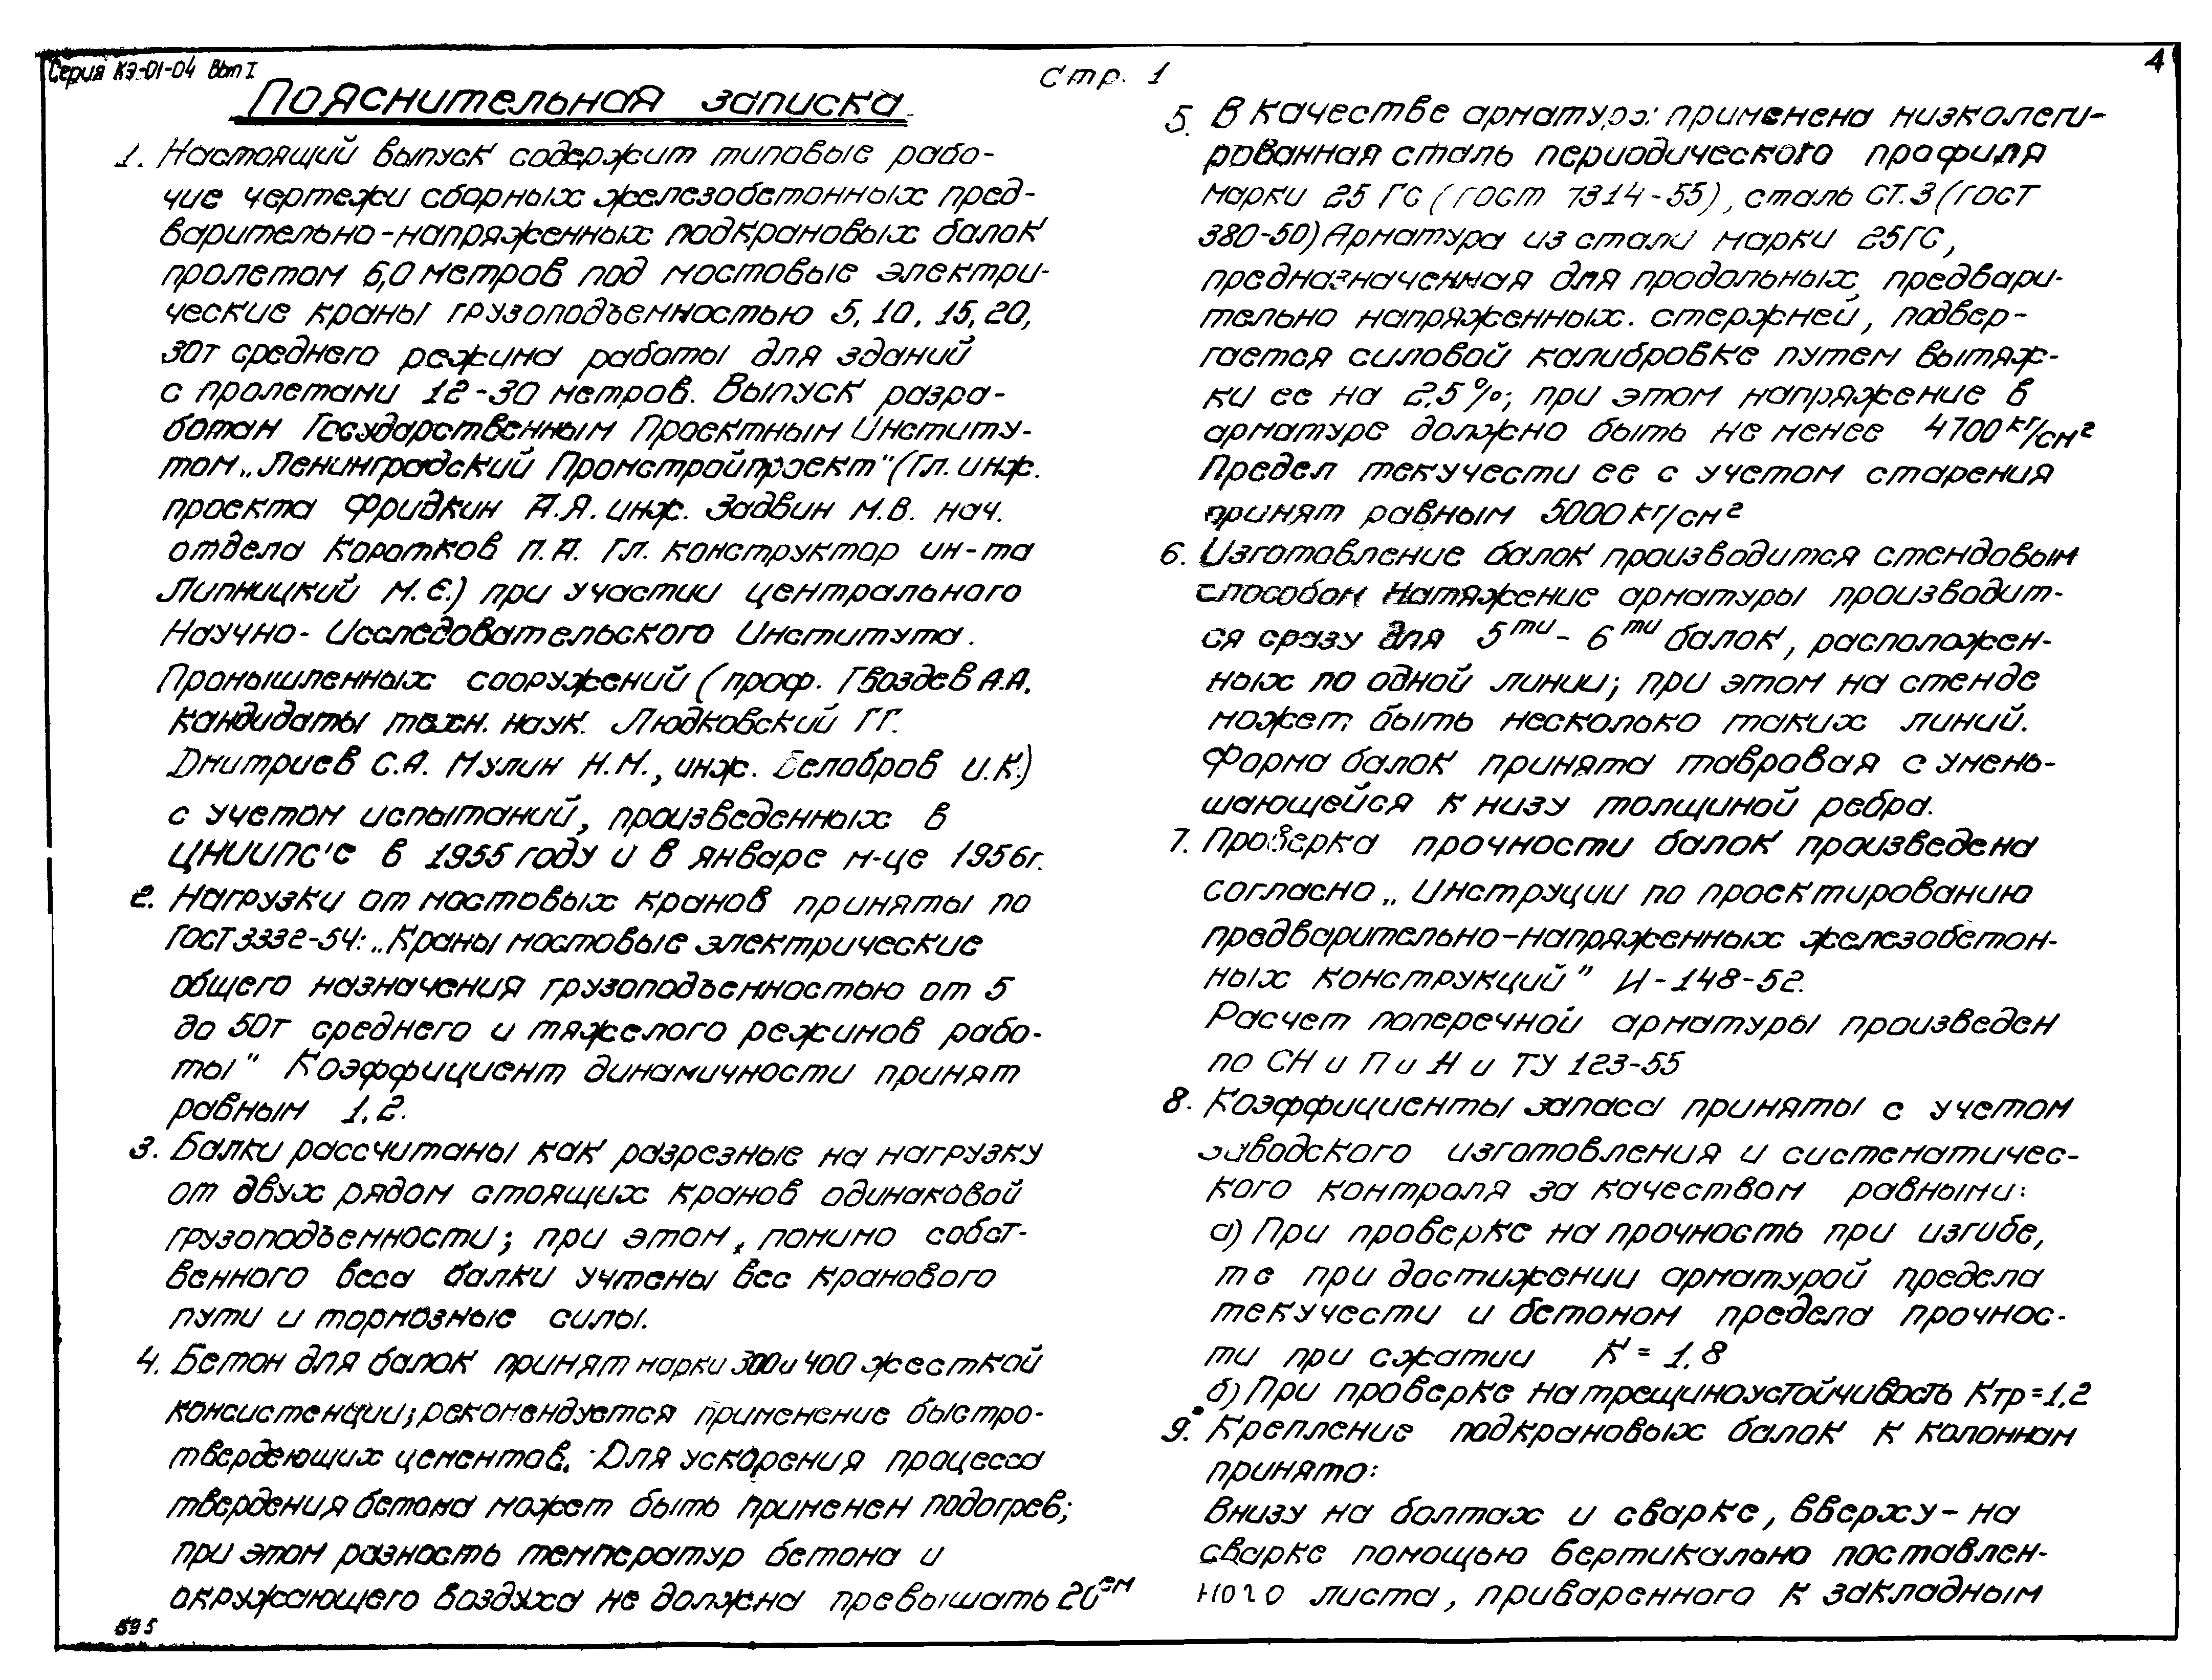 Серия КЭ-01-04 Вып I
Стр. 1
4
Пояснительная записка
1. Настоящий выпуск содержит типовые рабо-
чие чертежи сборных железобетонных пред-
варительно-напряженных подкрановых балок
пролетом 6,0 метров под мостовые электри-
ческие краны грузоподъемностью 5, 10, 15, 20,
30т среднего режима работы для зданий
с пролетами 12-30 метров. Выпуск разра-
ботан Государственным Проектным Институ-
том „Ленинградский Промстройпроект" (Гл. инж.
проекта Фридкин А.Я. инж. Задвин М.В. нач.
отдела Коротков П.А. Гл. конструктор ин-та
Липницкий М.Е.) при участии центрального
Научно-Исследовательского Института.
Промышленных сооружений (проф. Гвоздев А.А.
кандидаты техн. наук. Людковский Г.Г.
Дмитриев С.А. Мулин Н.М., инж. Белобров И.К.)
с учетом испытаний, произведенных в
ЦНИИПС'е в 1955 году и в январе м-це 1956г.
2. Нагрузки от мостовых кранов приняты по
ГОСТ 3332-54: „Краны мостовые электрические
общего назначения грузоподъемностью от 5
до 50т среднего и тяжелого режимов рабо-
ты" Коэффициент динамичности принят
равным 1,2.
3. Балки рассчитаны как разрезные на нагрузку
от двух рядом стоящих кранов одинаковой
грузоподъемности; при этом, помимо собст-
венного веса балки учтены вес кранового
пути и тормозные силы.
4. Бетон для балок принят марки 300 и 400 жесткой
консистенции; рекомендуется применение быстро-
твердеющих цементов. Для ускорения процесса
твердения бетона может быть применен подогрев;
при этом разность температур бетона и
окружающего воздуха не должна превышать 20
595
5. В качестве арматуры применена низколеги-
рованная сталь периодического профиля
марки 25 ГС (ГОСТ 7314-55), сталь СТ.3 (ГОСТ
380-50) Арматура из стали марки 25ГС,
предназначенная для продольных предвари-
тельно напряженных. стержней, подвер-
гается силовой калибровке путем вытяж-
ки ее на 2,5%; при этом напряжение в
арматуре должно быть не менее 4700 кг/см²
Предел текучести ее с учетом старения
принят равным 5000 кг/см²
6. Изготовление балок производится стендовым
способом Натяжение арматуры производит-
ся сразу для 5ти - 6ти балок, расположен-
ных по одной линии; при этом на стенде
может быть несколько таких линий.
Форма балок принята тавровая с умень-
шающейся к низу толщиной ребра.
7. Проверка прочности балок произведена
согласно „Инструции по проектированию
предварительно-напряженных железобетон-
ных конструкций" И-148-52.
Расчет поперечной арматуры произведен
по СН и П и Н и ТУ 123-55
8. Коэффициенты запаса приняты с учетом
заводского изготовления и систематичес-
кого контроля за качеством равными:
а) При проверке на прочность при изгибе,
т е при достижении арматурой предела
текучести и бетоном предела прочнос-
ти при сжатии К = 1,8
б) При проверке на трещиноустойчивость Ктр = 1,2
9. Крепление подкрановых балок к колоннам
принято:
внизу на болтах и сварке, вверху - на
сварке помощью вертикально поставлен-
ного листа, приваренного к закладным